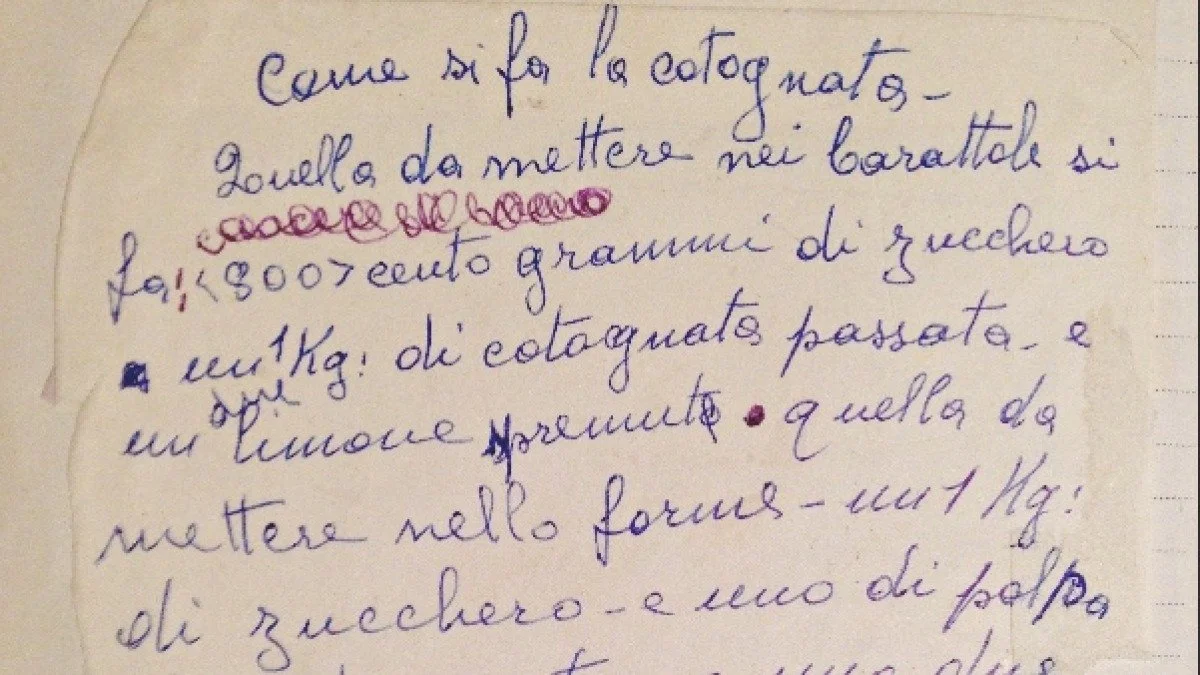 Come si fa la cotognata -
Quella da mettere nei barattole si
fa: <800> cento grammi di zucchero
un 1 Kg: di cotognata passata - e
due
un limone spremute . quella da
mettere nelle forme - un 1 Kg:
di zucchero - e uno di polpa
due